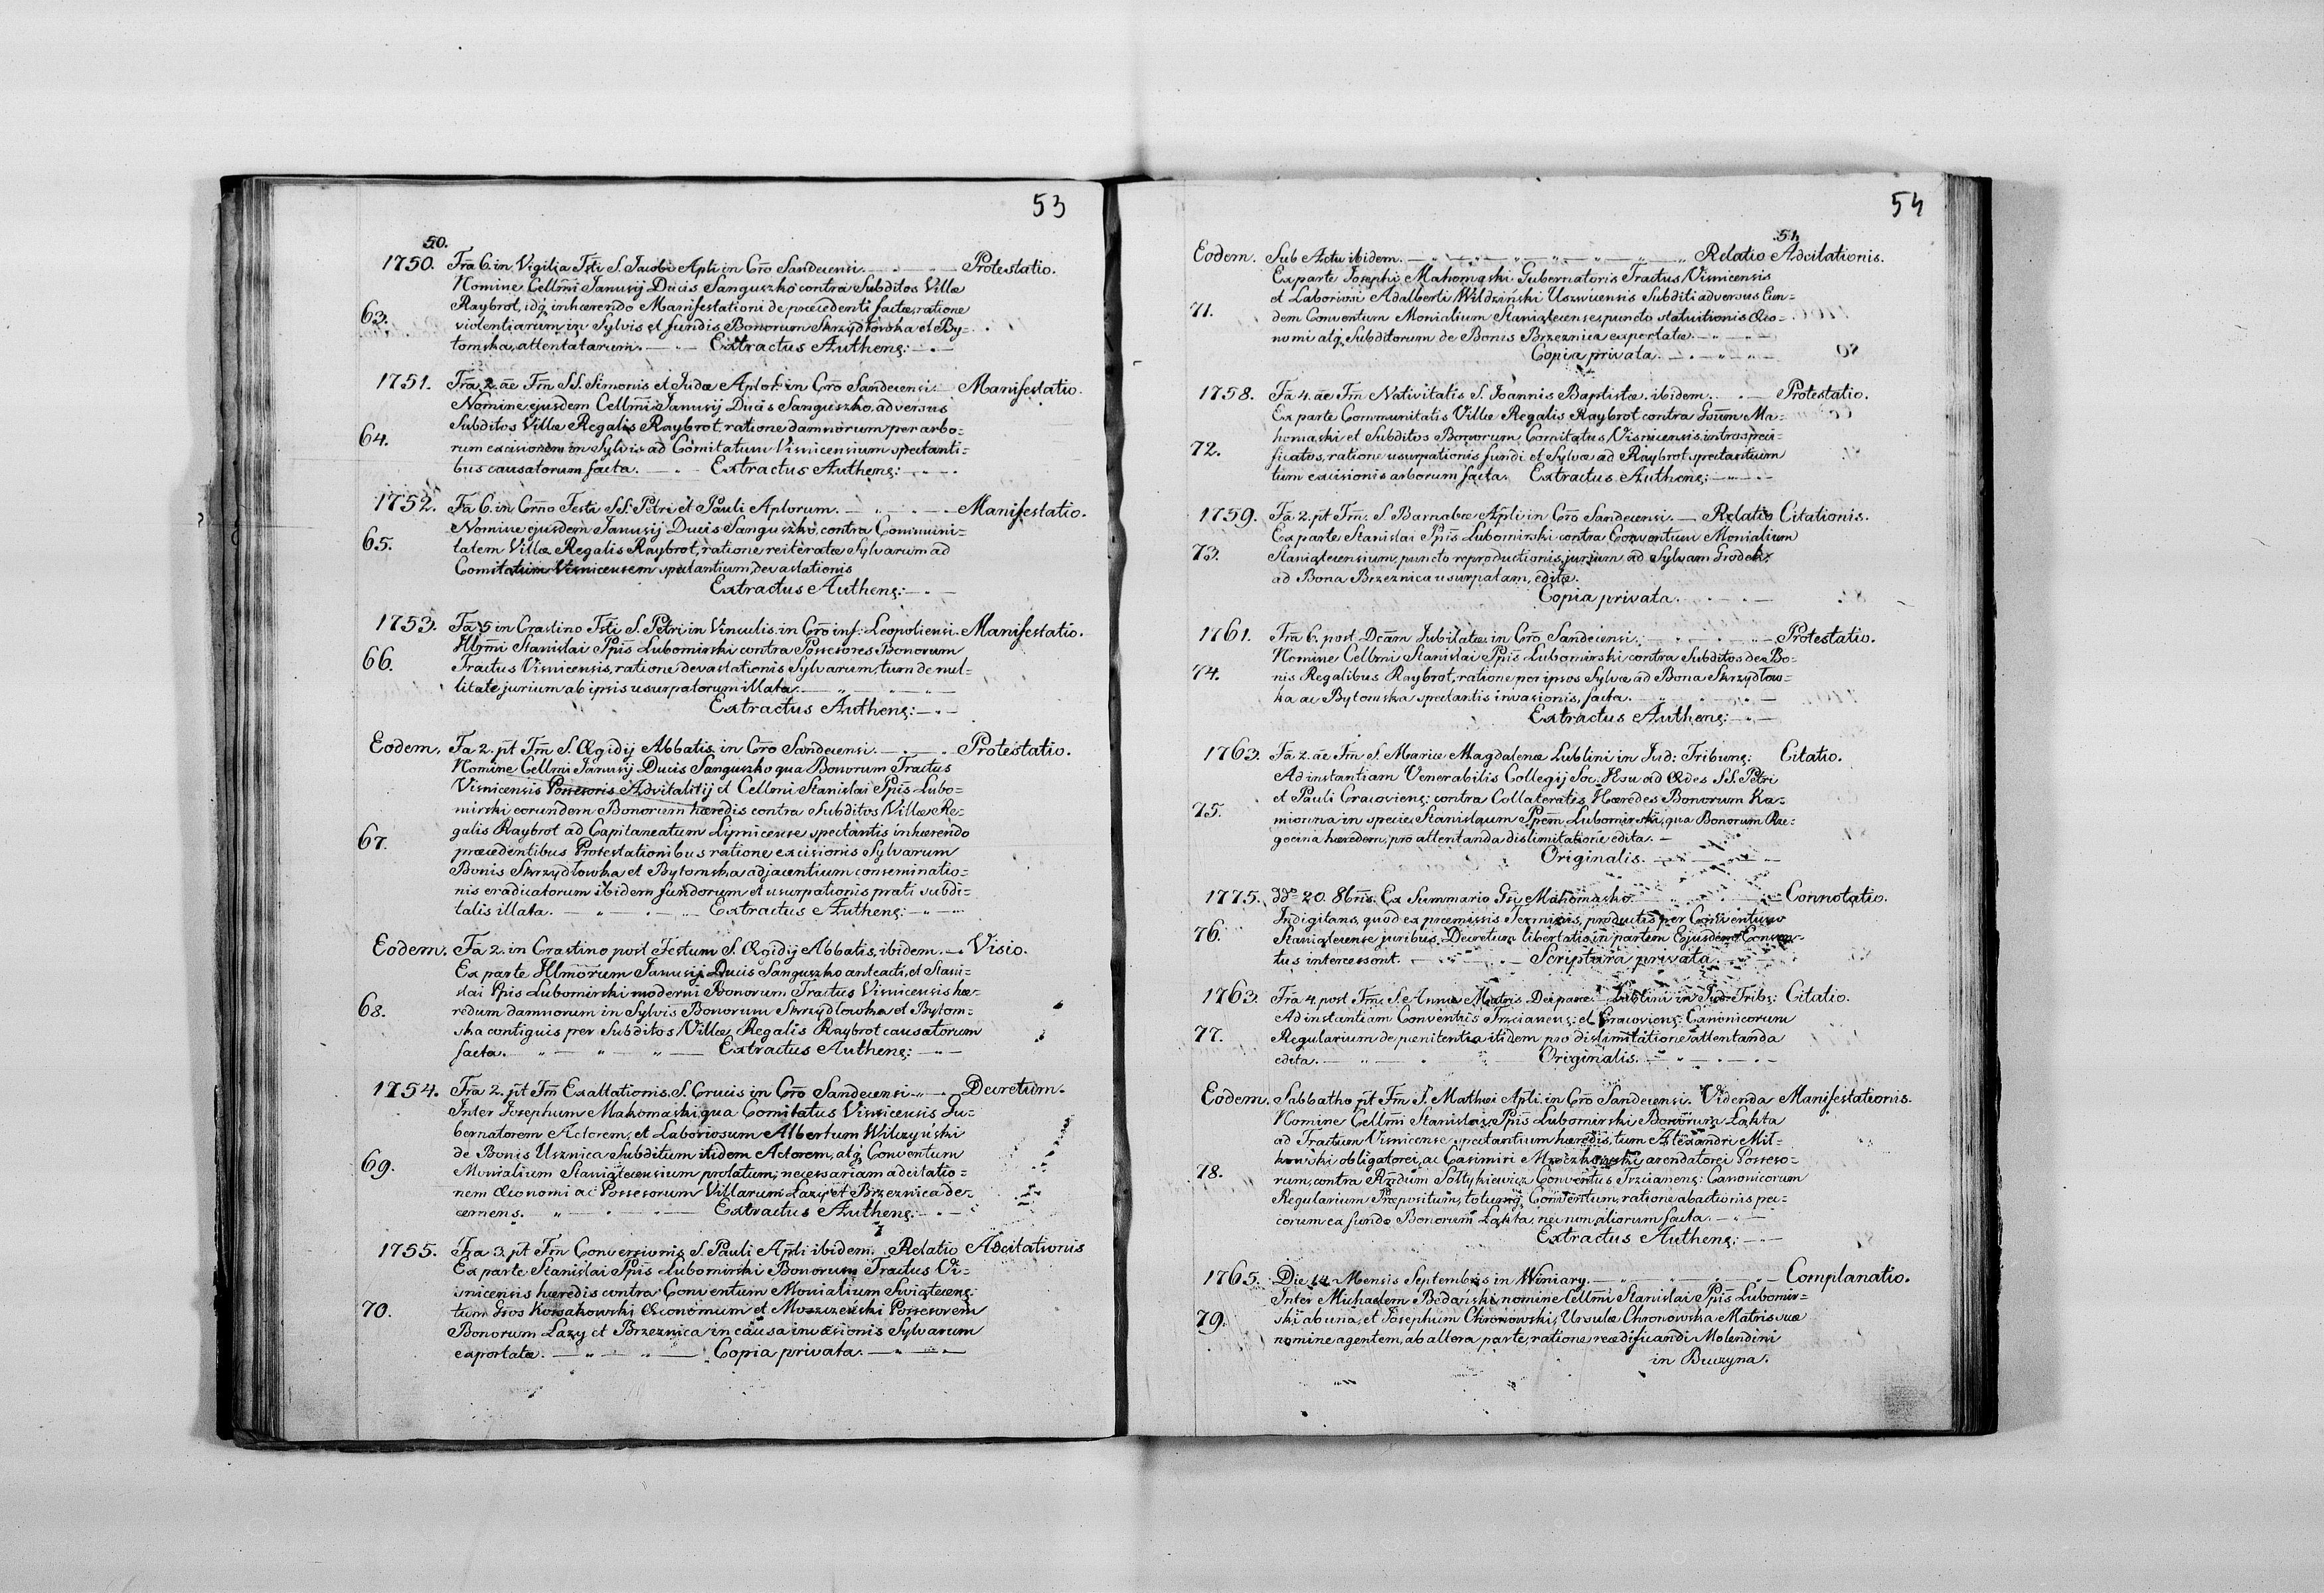 53
50.
1750. Fra 6. in Vigilia Fsti S. Jacobi Apli in Cro Sandecensi. Protestatio.
Nomine Cellmi Janusij Ducis Sanguszko contra Subditos Villæ
Raybrot, idq inhærendo Manifestationi de præcedenti factæ, ratione
63. violentiarum in Sylvis et fundis Bonorum Skrzydłowska et By=
tomska, attentatarum. Extractus Authens:
1751. Fra 2. ae Fm SS. Simonis et Judæ Aplor: in Cro Sandecensi. Manifestatio.
Nomine ejusdem Cellmi Janusij Ducis Sanguszko, adversus
Subditos Villæ Regalis Raybrot, ratione damnorum per arbo=
64. rum excisionem in Sylvis ad Comitatum Visnicensium spectanti=
bus causatorum facta. Extractus Authens:
1752. Fa 6. in Crno Festi SS. Petri et Pauli Aplorum. Manifestatio.
Nomine ejusdem Janusij Ducis Sanguszko, contra Communi=
65. tatem Villæ Regalis Raybrot, ratione reiteratæ Sylvarum ad
Comitatum Visnicensem spectantium, devastationis
Extractus Authens:
1753. Fa 5 in Crastino Fsti S. Petri in Vinculis in Cro inf: Leopoliensi. Manifestatio.
Illrmi Stanislai Ppis Lubomirski contra Possesores Bonorum
66. Tractus Visnicensis, ratione devastationis Sylvarum, tum de nul=
litate jurium ab ipsis usurpatorum illata.
Extractus Authens:
Eodem. Fa 2. pt Fm S. Ægidij Abbatis in Cro Sandecensi. Protestatio.
Nomine Cellmi Janusij Ducis Sanguszko qua Bonorum Tractus
Visnicensis Possesoris Advitalitij et Cellmi Stanislai Ppis Lubo=
mirski eorundem Bonorum hæredis contra Subditos Villæ Re=
galis Raybrot ad Capitaneatum Lipnicense spectantis inhærendo
67. præcedentibus Protestationibus ratione excisionis Sylvarum
Bonis Skrzydłowska et Bytomska adjacentium conseminatio=
nis eradicatorum ibidem fundorum et usurpationis prati subdi=
talis illata. Extractus Authens:
Eodem. Fa 2. in Crastino post Festum S. Ægidij Abbatis, ibidem. Visio.
Ex parte Illmorum Janusij Ducis Sanguszko anteacti, et Stani=
slai Ppis Lubomirski moderni Bonorum Tractus Visnicensis hæ=
68. redum damnorum in Sylvis Bonorum Skrzydłowka et Bytom=
ska contiguis per Subditos Villæ Regalis Raybrot causatorum
facta. Extractus Authens:
1754. Fra 2. pt Fm Exaltationis S. Crucis in Cro Sandecensi. Decretum.
Inter Josephum Mahomaski qua Comitatus Visnicensis Gu=
bernatorem Actorem, et Laboriosum Albertum Wilczyński
de Bonis Usznica Subditum itidem Actorem, atq Conventum
69. Monialium Staniątecensium prolatum, necessariam adcitatio=
nem Œconomi ac Possesorum Villarum Łazy et Brzeznica de=
cernens. Extractus Authens:
1755. Fra 3. pt Fm Conversionis S. Pauli Apli ibidem. Relatio Adcitationis
Ex parte Stanislai Ppis Lubomirski Bonorum Tractus Vi=
snicensis hæredis contra Conventum Monialium Swiątecens:
70. tum Gsos Kossakowski Œconomum et Moszczeński Possesorem
Bonorum Łazy et Brzeznica in causa invasionis Sylvarum
exportatæ. Copia privata.
54
51.
Eodem. Sub Actu ibidem. Relatio Adcitationis.
Ex parte Josephi Mahomaski Gubernatoris Tractus Visnicensis
et Laboriosi Adalberti Wildziński Uszwicensis Subditi adversus Eun=
71. dem Conventum Monialium Staniątecense, puncto statuitionis Œco=
nomi atq Subditorum de Bonis Brzeznica exportatæ.
Copia privata.
1758. Fa 4. ae Fm Nativitatis S. Joannis Baptistæ. ibidem. Protestatio.
Ex parte Communitatis Villæ Regalis Raybrot contra Gsum Ma=
homaski et Subditos Bonorum Comitatus Visnicensis introspeci=
72. ficatos, ratione usurpationis fundi et Sylvæ ad Raybrot spectantium
tum excisionis arborum facta. Extractus Authens:
1759. Fa 2. pt Fm. S. Barnabæ Apli in Cro Sandecensi. Relatio Citationis.
Ex parte Stanislai Ppis Lubomirski contra Conventum Monialium
73. Staniątecensium, puncto reproductionis jurium ad Sylvam Grodek,
ad Bona Brzeznica usurpatam, editæ.
Copia privata.
1761. Fra 6. post Dcam Jubilate in Cro Sandecensi. Protestatio.
Nomine Cellmi Stanislai Ppis Lubomirski contra Subditos de Bo=
74. nis Regalibus Raybrot, ratione per ipsos Sylvæ ad Bona Skrzydłow=
ka ac Bytomska spectantis invasionis, facta.
Extractus Authens:
1763. Fa 2. ae Fm S. Mariæ Magdalenæ Lublini in Jud: Tribuns: Citatio.
Ad instantiam Venerabilis Collegij Soc: Jesu ad Ædes SS. Petri
et Pauli Cracoviens: contra Collaterales Hæredes Bonorum Ka=
75. mionna in specie Stanislaum Ppem Lubomirski, qua Bonorum Rze=
gocina hæredem, pro attentanda dislimitatione edita.
Originalis.
1775. dd° 20. 8bris. Ex Summario Gsi Mahomaski. Connotatio.
Indigitans, quod ex præmissis Terminis, productis per Conventum
76. Staniątecense juribus, Decretum libertationis in partem Ejusdem Conven=
tus intercessent. Scriptura privata.
1763. Fra 4. post Fm. S. Annæ Matris Deiparæ. Lublini in Jud: Tribs: Citatio.
Ad instantiam Conventus Trzcianens: et Cracoviens: Canonicorum
77. Regularium de pœnitentia itidem pro dislimitatione attentanda
edita. Originalis.
Eodem. Sabbatho pt Fm S. Mathæi Apli. in Cro Sandecensi. Videnda Manifestationis.
Nomine Cellmi Stanislai Ppis Lubomirski Bonorum Łąkta
ad Tractum Visnicense spectantium hæredis, tum Alexandri Mit=
kowski obligatorei, ac Casimiri arendatorei Posseso=
78. rum, contra Rndum Sołtykiewicz Conventus Trzcianens: Canonicorum
Regularium Præpositum, totumq Conventum, ratione abactionis pe=
corum ex fundo Bonorum Łąkta, nec non aliorum facta.
Extractus Authens:
1765. Die 14. Mensis Septembris in Winiary. Complanatio.
Inter Michaelem Bedański nomine Cellmi Stanislai Ppis Lubomir=
79. ski ab una, et Josephum Chronowski, Ursulæ Chronowska Matris suæ
nomine agentem, ab altera parte, ratione reædificandi Molendini
in Buczyna.